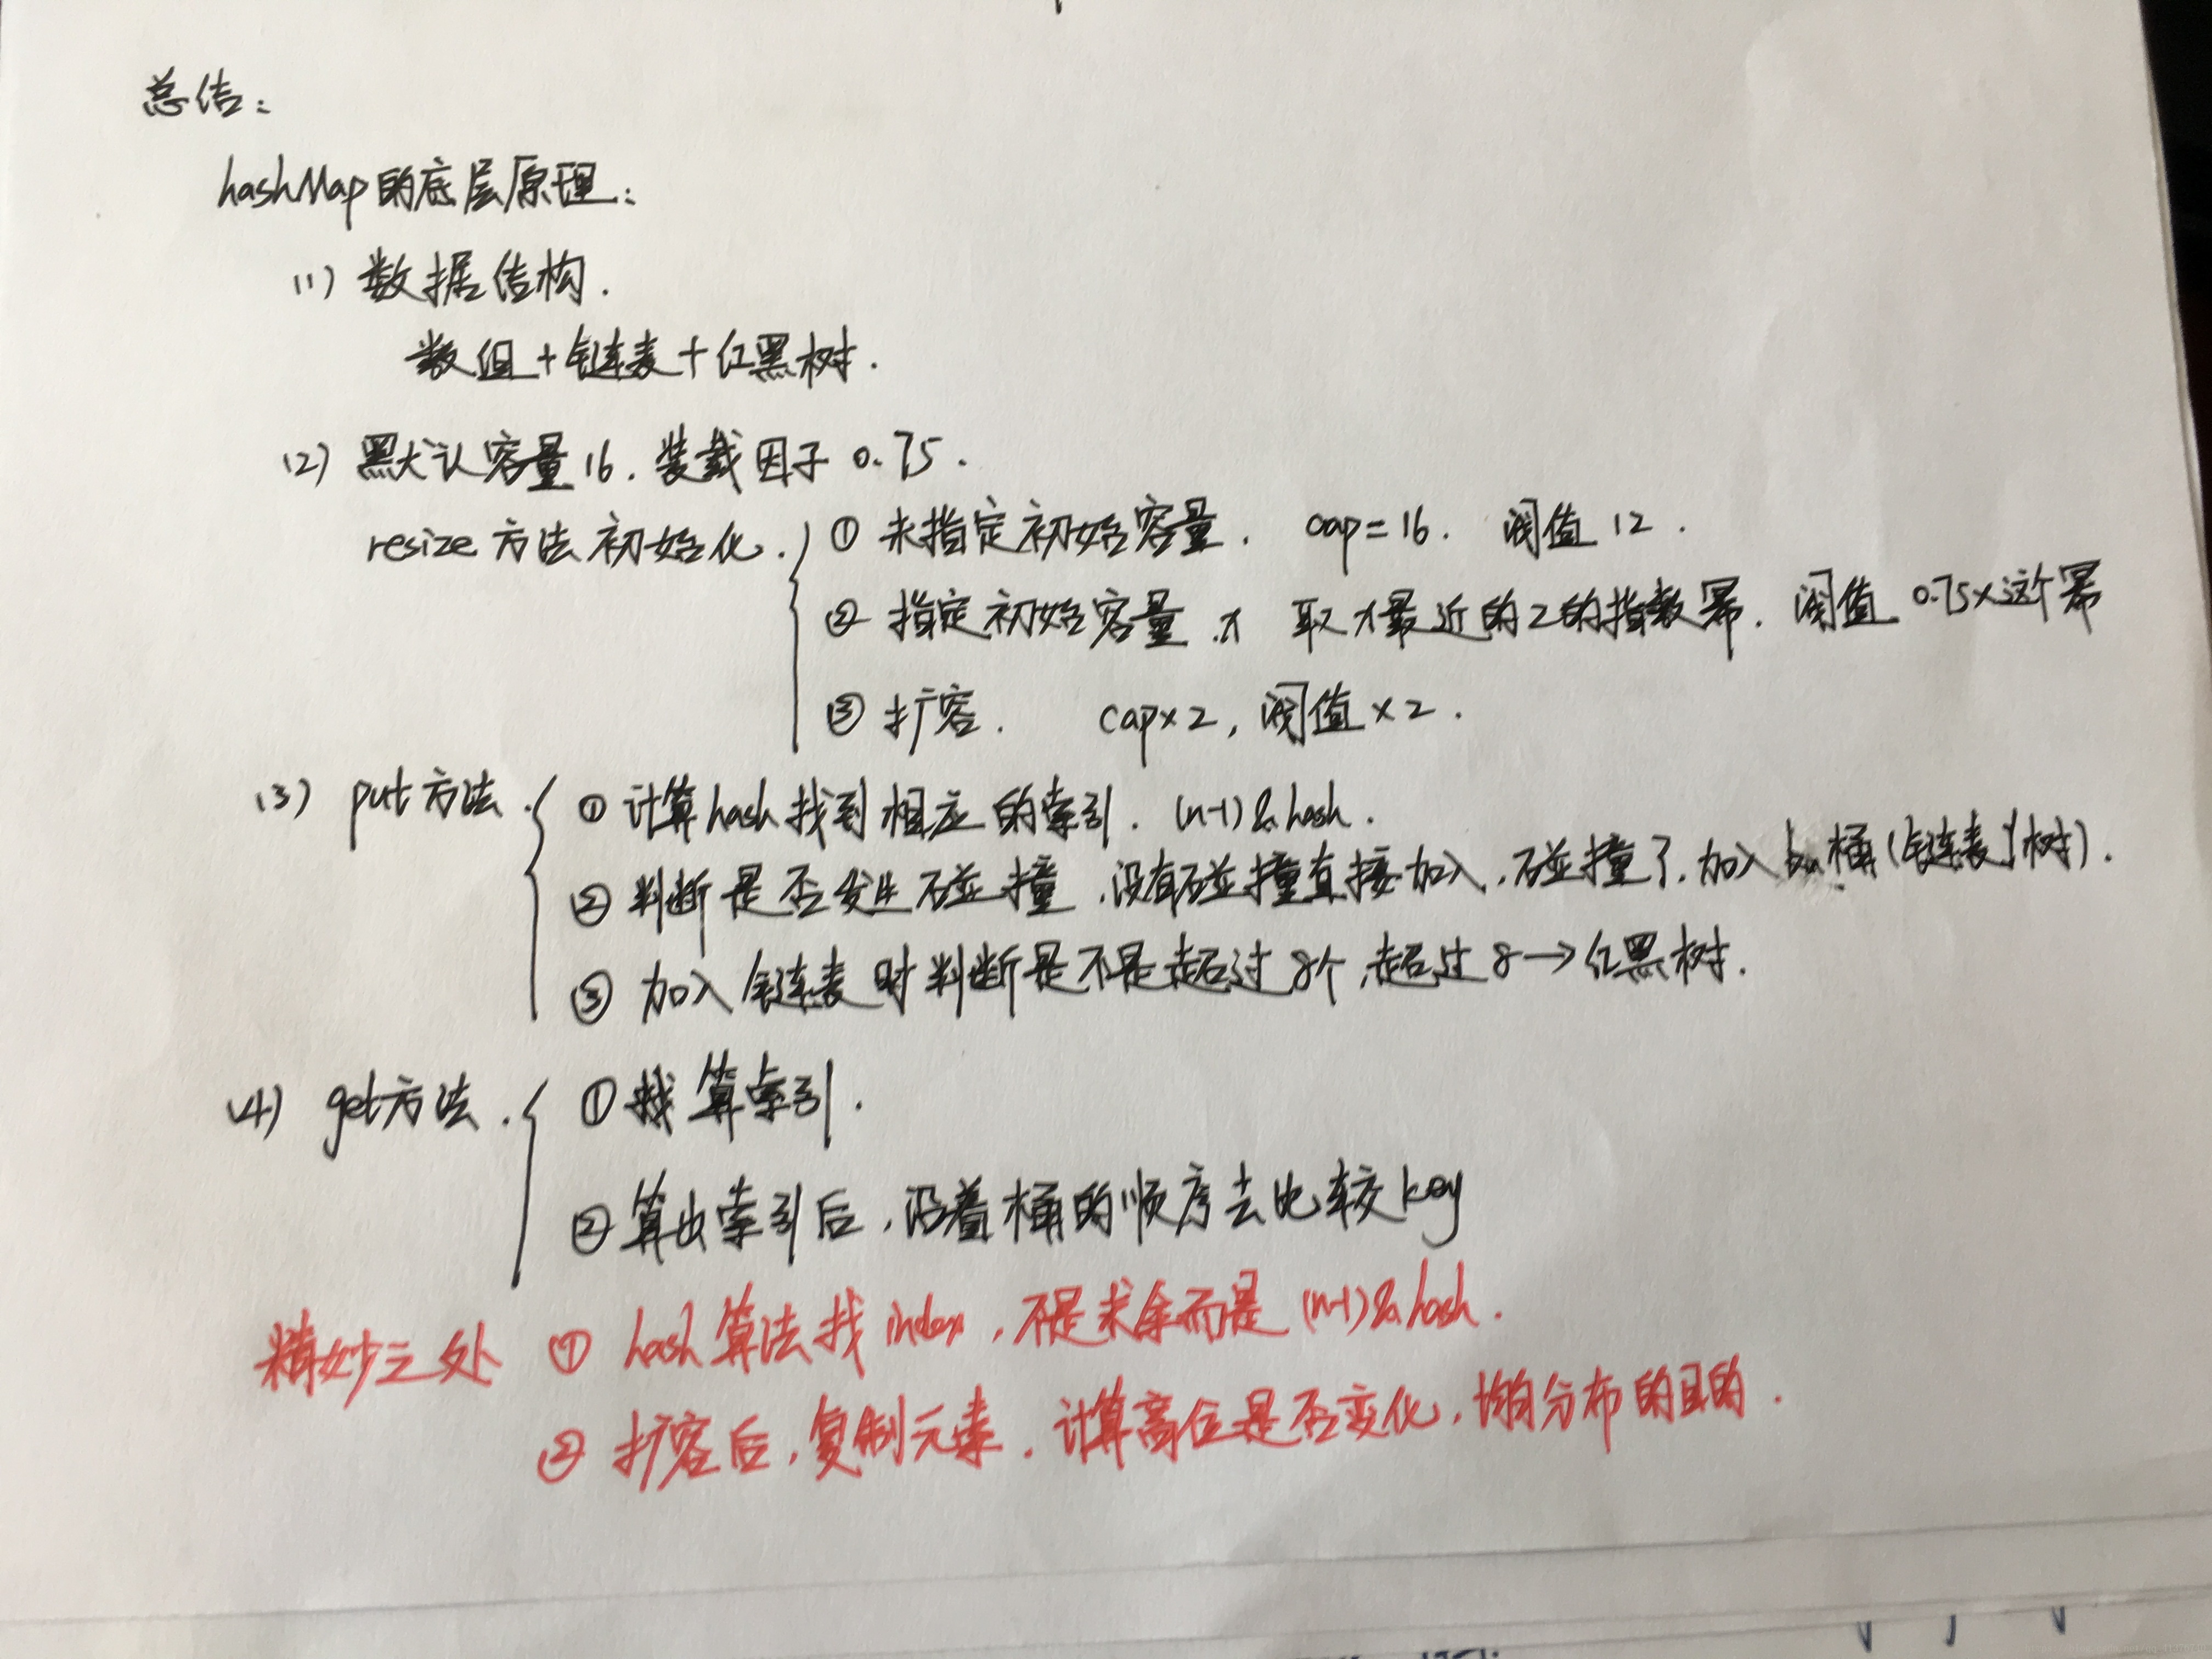 总结:
hashMap的底层原理:
(1) 数据结构.
数组+链表+红黑树.
(2) 默认容量16. 装载因子 0.75.
resize方法初始化. ① 未指定初始容量. cap=16. 阈值12.
② 指定初始容量 x 取x最近的2的指数幂. 阈值 0.75×这个幂
③ 扩容. cap×2, 阈值×2.
(3) put方法. ① 计算hash找到相应的索引. (n-1)&hash.
② 判断是否发生碰撞. 没有碰撞直接加入. 碰撞了. 加入 桶(链表/树).
③ 加入链表时判断是不是超过8个. 超过8→红黑树.
(4) get方法. ① 算索引.
② 算出索引后. 沿着桶的顺序去比较key
精妙之处 ① hash算法找index. 不是求余而是 (n-1)&hash.
② 扩容后. 复制元素. 计算高位是否变化. 分布的目的.